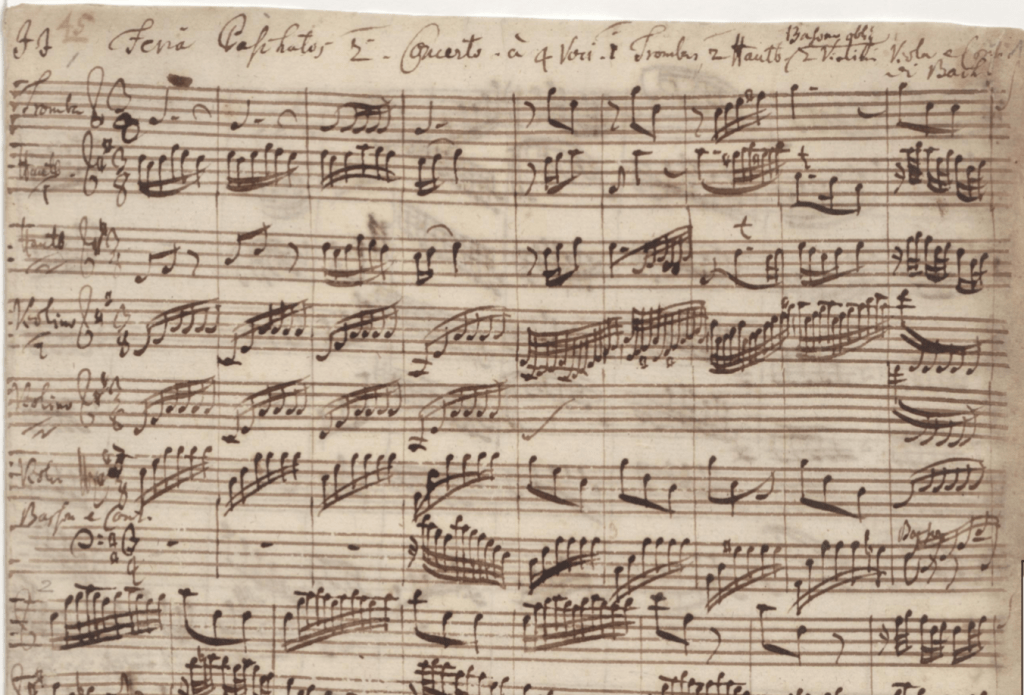 J J. Feria Paschatos 2. Concerto. à 4 Voci. 1 Tromba 2 Hautb. 2 Violini Viola e
Bassono obli
di Bach
45
Tromba
Hautb
1
Hautb
Violino
1
Violino
Viola
Basson e Cont.
Basson